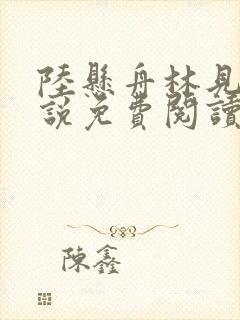 陸懸舟林見
說免費閱讀
陳鑫